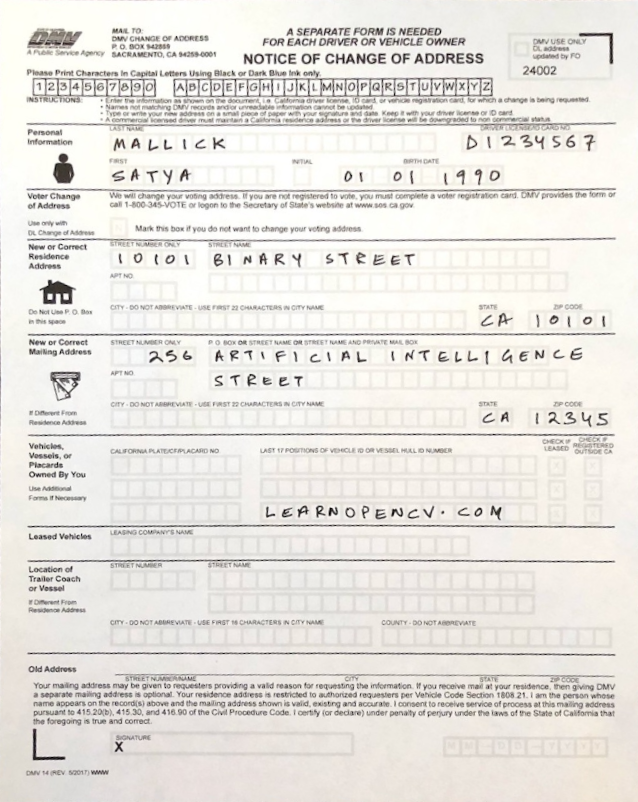 DMV
A Public Service Agency
MAIL TO:
DMV CHANGE OF ADDRESS
P. O. BOX 942859
SACRAMENTO, CA 94259-0001
A SEPARATE FORM IS NEEDED
FOR EACH DRIVER OR VEHICLE OWNER
NOTICE OF CHANGE OF ADDRESS
DMV USE ONLY
DL address
updated by FO
24002
Please Print Characters In Capital Letters Using Black or Dark Blue Ink only.
1 2 3 4 5 6 7 8 9 0 A B C D E F G H I J K L M N O P Q R S T U V W X Y Z
INSTRUCTIONS:
• Enter the information as shown on the document, i.e. California driver license, ID card, or vehicle registration card, for which a change is being requested.
• Names not matching DMV records and/or unreadable information cannot be updated.
• Type or write your new address on a small piece of paper with your signature and date. Keep it with your driver license or ID card.
• A commercial licensed driver must maintain a California residence address or the driver license will be downgraded to non commercial status.
Personal
Information
LAST NAME
DRIVER LICENSE/ID CARD NO.
MALLICK D1234567
FIRST INITIAL BIRTH DATE
SATYA 01 01 1990
Voter Change
of Address
We will change your voting address. If you are not registered to vote, you must complete a voter registration card. DMV provides the form or
call 1-800-345-VOTE or logon to the Secretary of State's website at www.sos.ca.gov.
Use only with
DL Change of Address
Mark this box if you do not want to change your voting address.
New or Correct
Residence
Address
STREET NUMBER ONLY STREET NAME
10101 BINARY STREET
APT NO.
Do Not Use P. O. Box
in this space
CITY - DO NOT ABBREVIATE - USE FIRST 22 CHARACTERS IN CITY NAME STATE ZIP CODE
CA 10101
New or Correct
Mailing Address
STREET NUMBER ONLY P. O. BOX OR STREET NAME OR STREET NAME AND PRIVATE MAIL BOX
256 ARTIFICIAL INTELLIGENCE
APT NO.
STREET
If Different From
Residence Address
CITY - DO NOT ABBREVIATE - USE FIRST 22 CHARACTERS IN CITY NAME STATE ZIP CODE
CA 12345
Vehicles,
Vessels, or
Placards
Owned By You
Use Additional
Forms If Necessary
CALIFORNIA PLATE/CF/PLACARD NO. LAST 17 POSITIONS OF VEHICLE ID OR VESSEL HULL ID NUMBER
CHECK IF
LEASED
CHECK IF
REGISTERED
OUTSIDE CA
LEARNOPENCV.COM
Leased Vehicles
LEASING COMPANY'S NAME
Location of
Trailer Coach
or Vessel
If Different From
Residence Address
STREET NUMBER STREET NAME
CITY - DO NOT ABBREVIATE - USE FIRST 16 CHARACTERS IN CITY NAME COUNTY - DO NOT ABBREVIATE
Old Address
STREET NUMBER/NAME CITY STATE ZIP CODE
Your mailing address may be given to requesters providing a valid reason for requesting the information. If you receive mail at your residence, then giving DMV
a separate mailing address is optional. Your residence address is restricted to authorized requesters per Vehicle Code Section 1808.21. I am the person whose
name appears on the record(s) above and the mailing address shown is valid, existing and accurate. I consent to receive service of process at this mailing address
pursuant to 415.20(b), 415.30, and 416.90 of the Civil Procedure Code. I certify (or declare) under penalty of perjury under the laws of the State of California that
the foregoing is true and correct.
SIGNATURE
X
M M - D D - Y Y Y Y
DMV 14 (REV. 5/2017) WWW